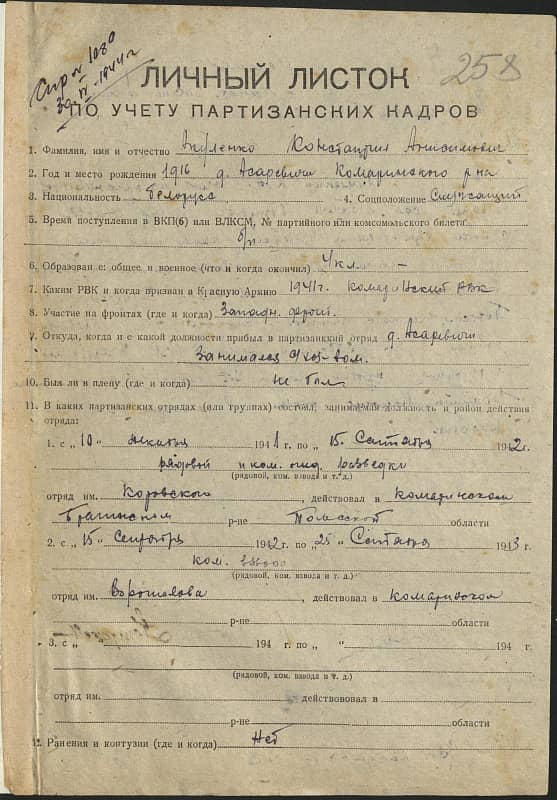 258
1944 г
ЛИЧНЫЙ ЛИСТОК
ПО УЧЕТУ ПАРТИЗАНСКИХ КАДРОВ
1. Фамилия, имя и отчество Константин Анисимович
2. Год и место рождения 1916 д. Асаревичи Комаринского р-на
3. Национальность белорус 4. Соцположение Служащий
5. Время поступления в ВКП(б) или ВЛКСМ, № партийного или комсомольского билета
б/п
6. Образован е: общее и военное (что и когда окончил) 4 кл. —
7. Каким РВК и когда призван в Красную Армию 1941 г. Комаринский РВК
8. Участие на фронтах (где и когда) Западн. фронт.
9. Откуда, когда и с какой должности прибыл в партизанский отряд д. Асаревичи
Занимался
10. Был ли в плену (где и когда) не был
11. В каких партизанских отрядах (или группах) состоял, занимаемая должность и район действия
отряда:
1. с „10" 1941 г. по „15. Сентября 1942 г.
рядовой и ком. отд. разведки
(рядовой, ком. взвода и т. д.)
отряд им. действовал в Комаринском
Брагинском р-не Полесской области
2. с „15" Сентября 1942 г. по „25" Сентября 1943 г.
ком. взвода
(рядовой, ком. взвода и т. д.)
отряд им. Ворошилова, действовал в Комаринском
р-не области
3. с „ " 194 г. по „ " 194 г.
(рядовой, ком. взвода и т. д.)
отряд им. действововал в
р-не области
12. Ранения и контузии (где и когда) Нет